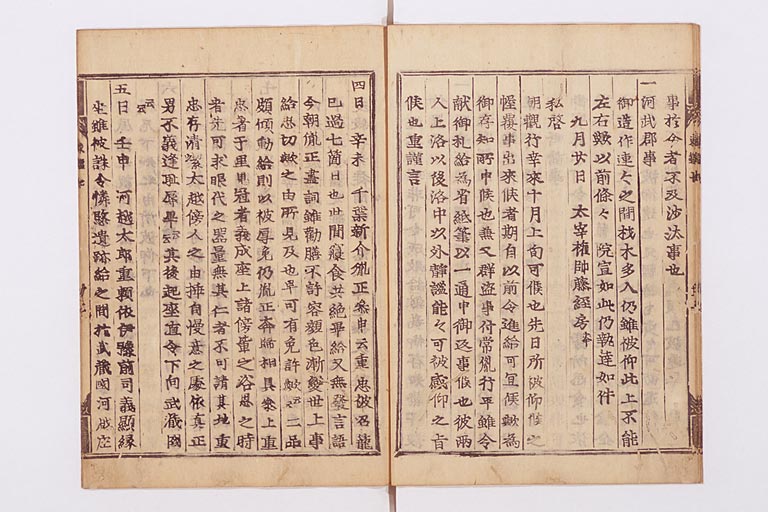 事於今者不及沙汰事也
一河武郡事
御造作連々之間材木多入仍雖被仰此上不能
左右歟以前條々 院宣如此仍執達如件
九月廿日 太宰權帥藤經房奉
私啓
朝覲行幸來十月上旬可候也先日所被仰候之
幄覆事出來候者期自以前令進給可宜候歟為
御存知所申候也兼又群盗事行常胤行平雖令
献御礼給為省紙筆以一通申御返事候也彼兩
人上洛以後洛中以外靜謐能々可被感仰之旨
候也重謹言
四日 辛未 千葉新介胤正参申云重忠被召籠
已過七箇日也此間寢食共絶畢給又無發言語
今朝胤正盡詞雖勸膳不許容顔色漸變世上事
給思切歟之由所見及也早可有免許歟云々二品
頗傾動給則以被厚免仍胤正奔歸相具参上重
忠著于里見冠者義成座上諸傍輩之浴恩之時
者先可求眼代之器量無其仁者不可請其地重
忠存清潔太越傍人之由挿自慢意之處依真正
男不義逢耻辱畢云其後起座直令下向武蔵國
云々
五日 壬申 河越太郎重頼依伊豫前司義顯縁
坐雖被誅令憐愍遺跡給之間於武蔵國河越庄